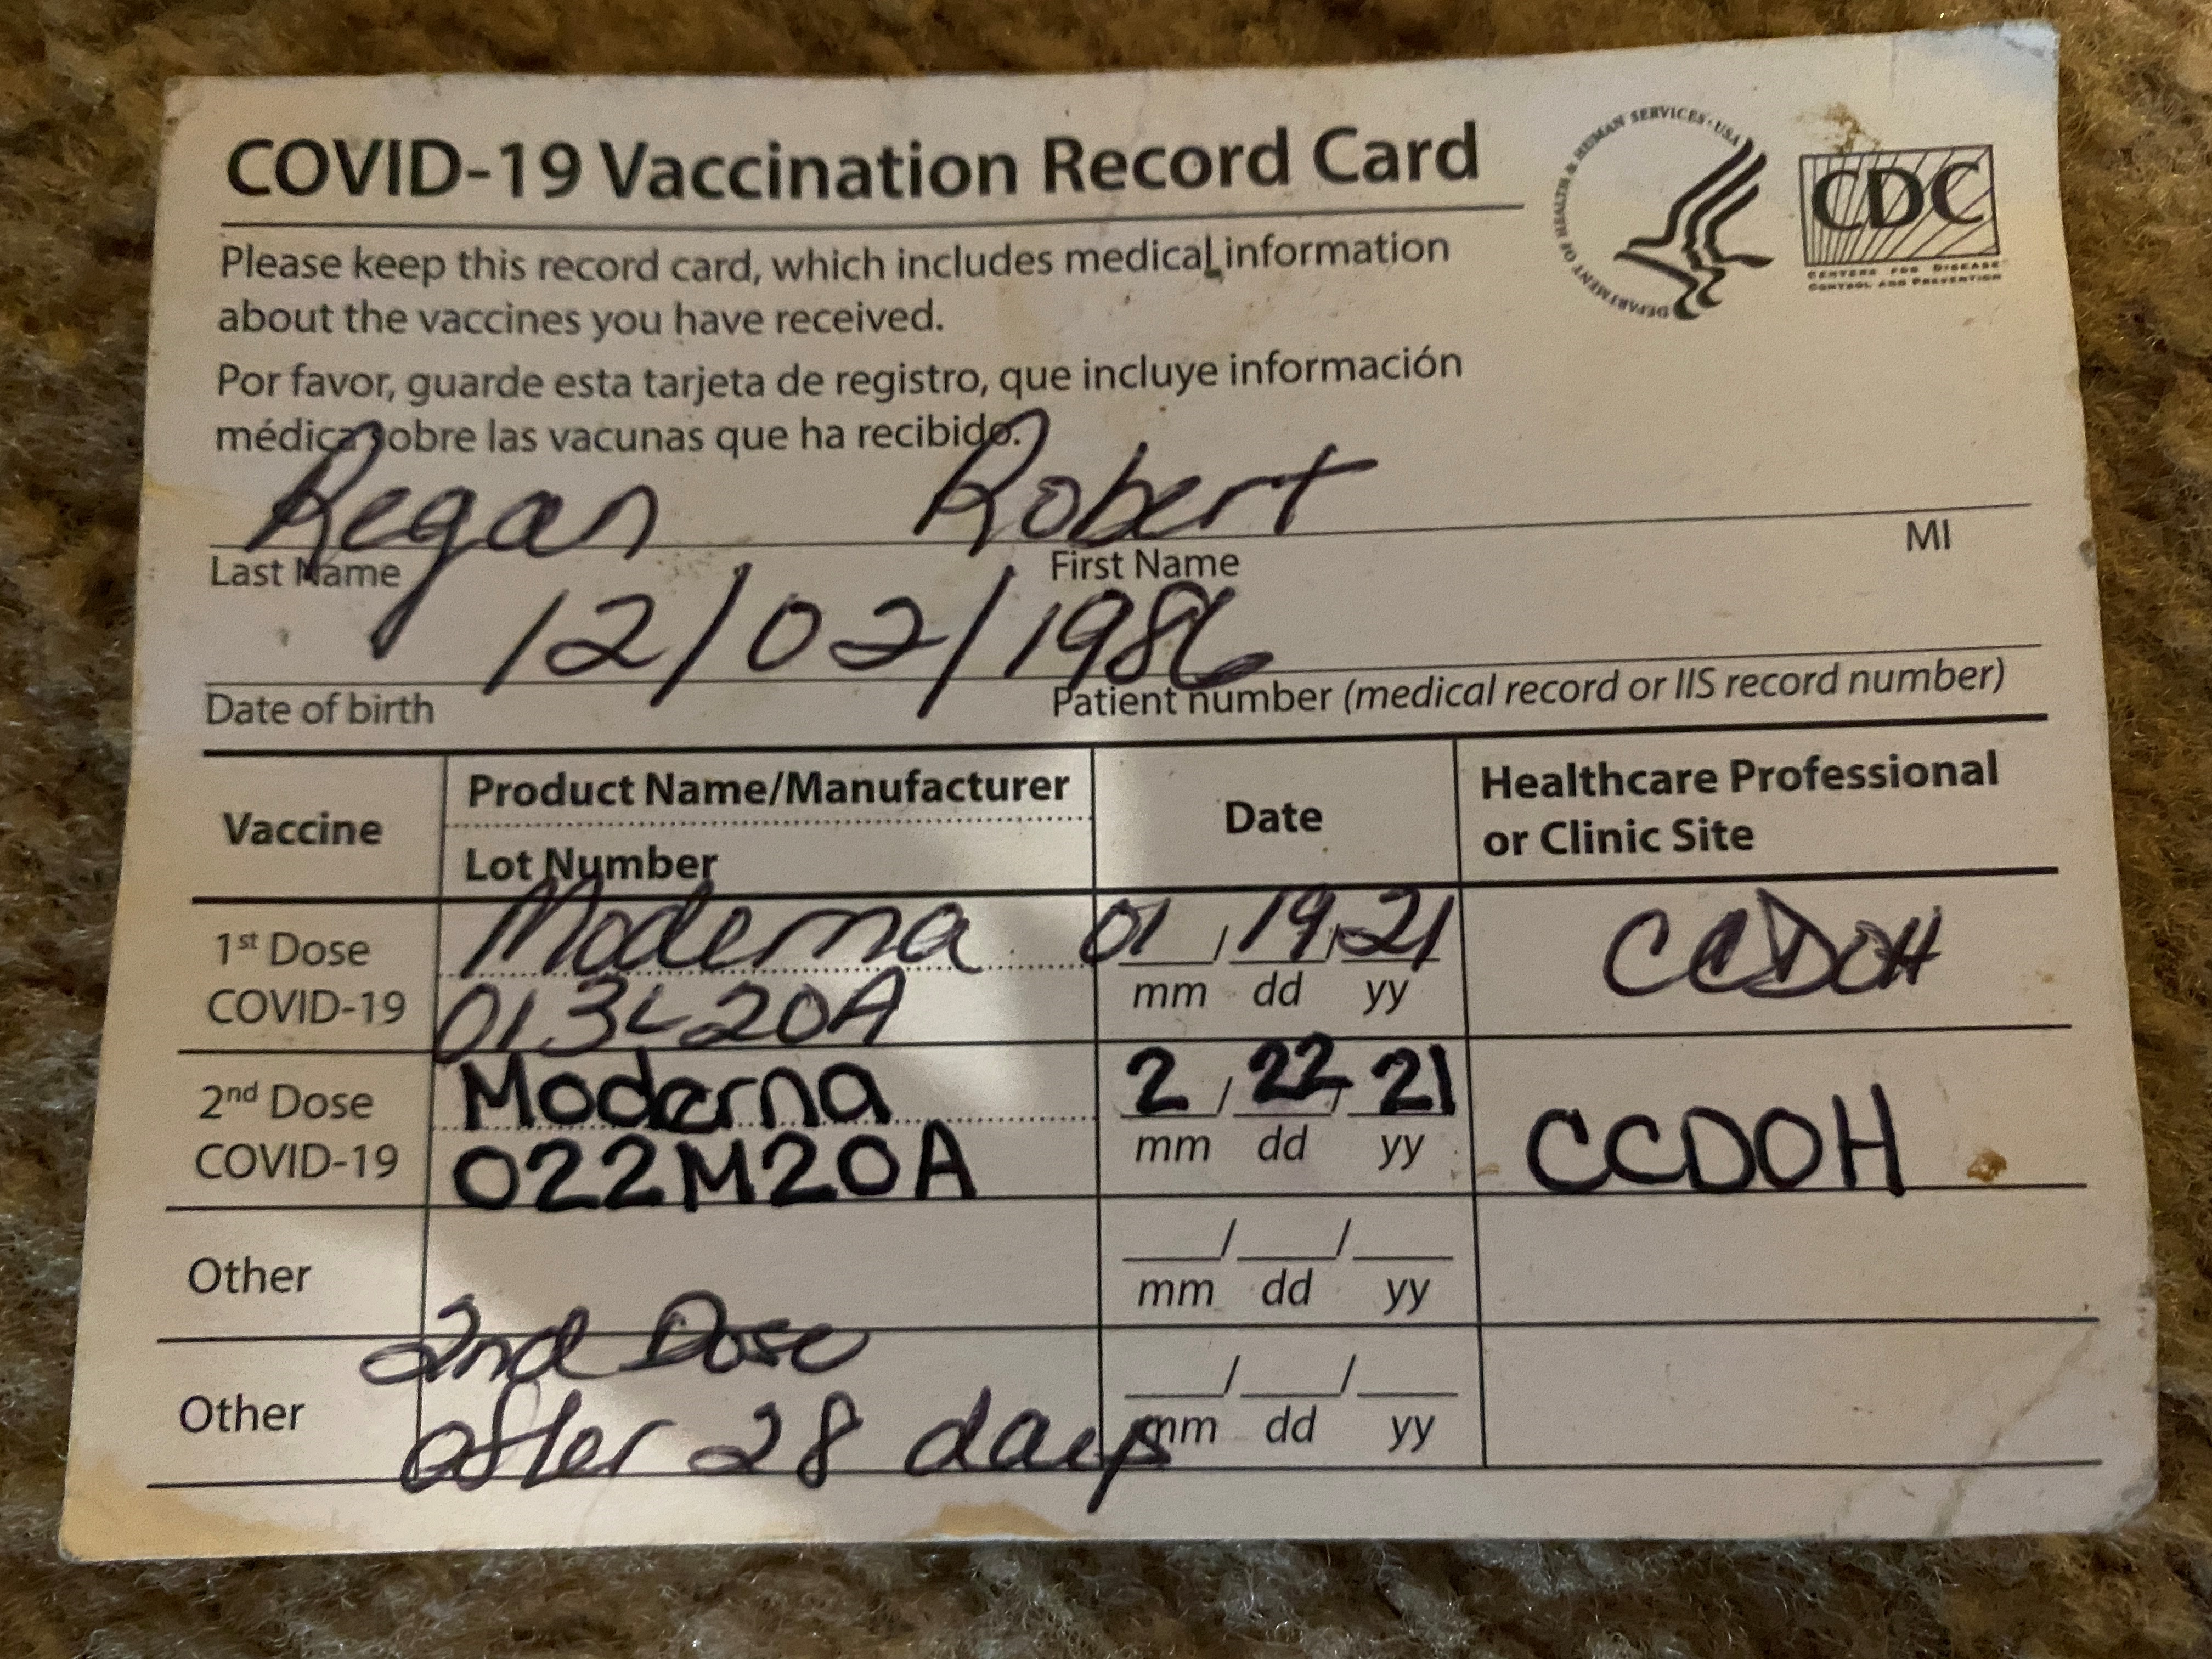 COVID-19 Vaccination Record Card
DEPARTMENT OF HEALTH & HUMAN SERVICES · USA
CDC
CENTERS FOR DISEASE
CONTROL AND PREVENTION
Please keep this record card, which includes medical information
about the vaccines you have received.
Por favor, guarde esta tarjeta de registro, que incluye información
médica sobre las vacunas que ha recibido.
Regan Robert
Last Name First Name MI
12/02/1986
Date of birth Patient number (medical record or IIS record number)
Vaccine Product Name/Manufacturer Date Healthcare Professional
Lot Number or Clinic Site
1st Dose Moderna 01/19/21 CCDOH
COVID-19 013L20A mm dd yy
2nd Dose Moderna 2/22/21 CCDOH
COVID-19 022M20A mm dd yy
Other ___/___/___
mm dd yy
2nd Dose
Other ___/___/___
after 28 days mm dd yy